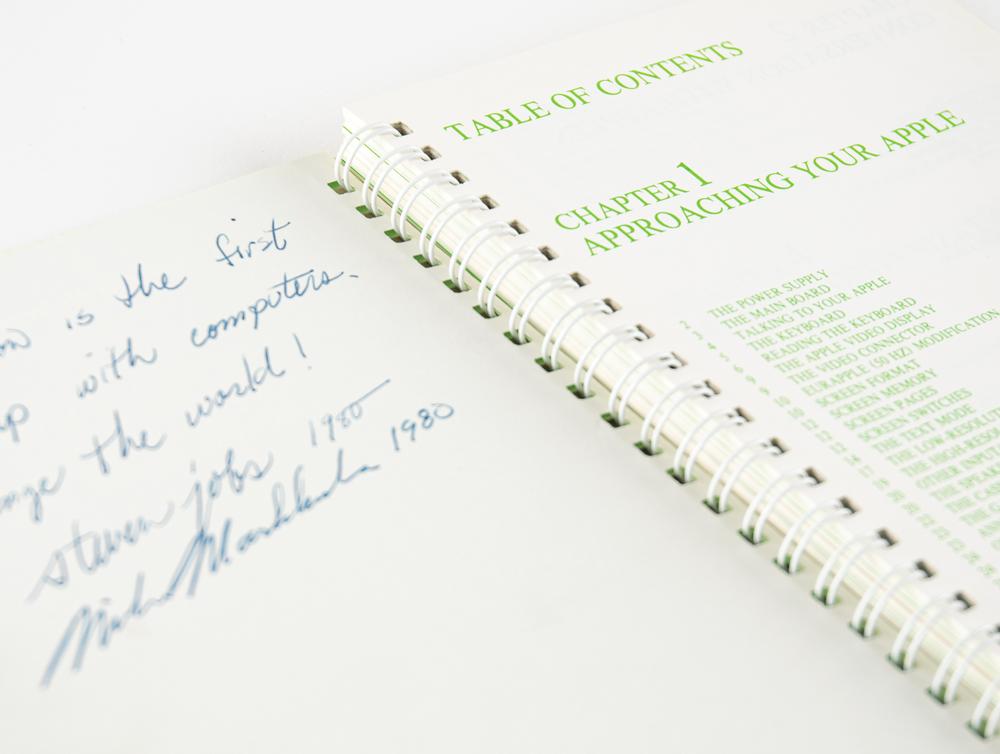 is the first
with computers.
the world!
steven jobs 1980
1980
TABLE OF CONTENTS
CHAPTER 1
APPROACHING YOUR APPLE
2 THE POWER SUPPLY
3 THE MAIN BOARD
4 TALKING TO YOUR APPLE
5 THE KEYBOARD
6 READING THE KEYBOARD
9 THE APPLE VIDEO DISPLAY
9 THE VIDEO CONNECTOR
10 EURAPPLE (50 HZ) MODIFICATION
10 SCREEN FORMAT
12 SCREEN MEMORY
12 SCREEN PAGES
12 SCREEN SWITCHES
14 THE TEXT MODE
17 THE LOW-RESOLUT
19 THE HIGH-RESOL
20 OTHER INPUT
20 THE SPEAK
22 THE CAS